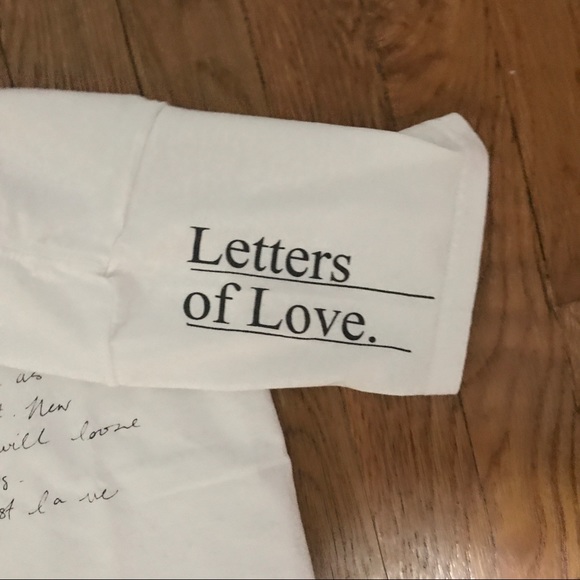 Letters
of Love.
as
. New
will loose
s.
st la ve